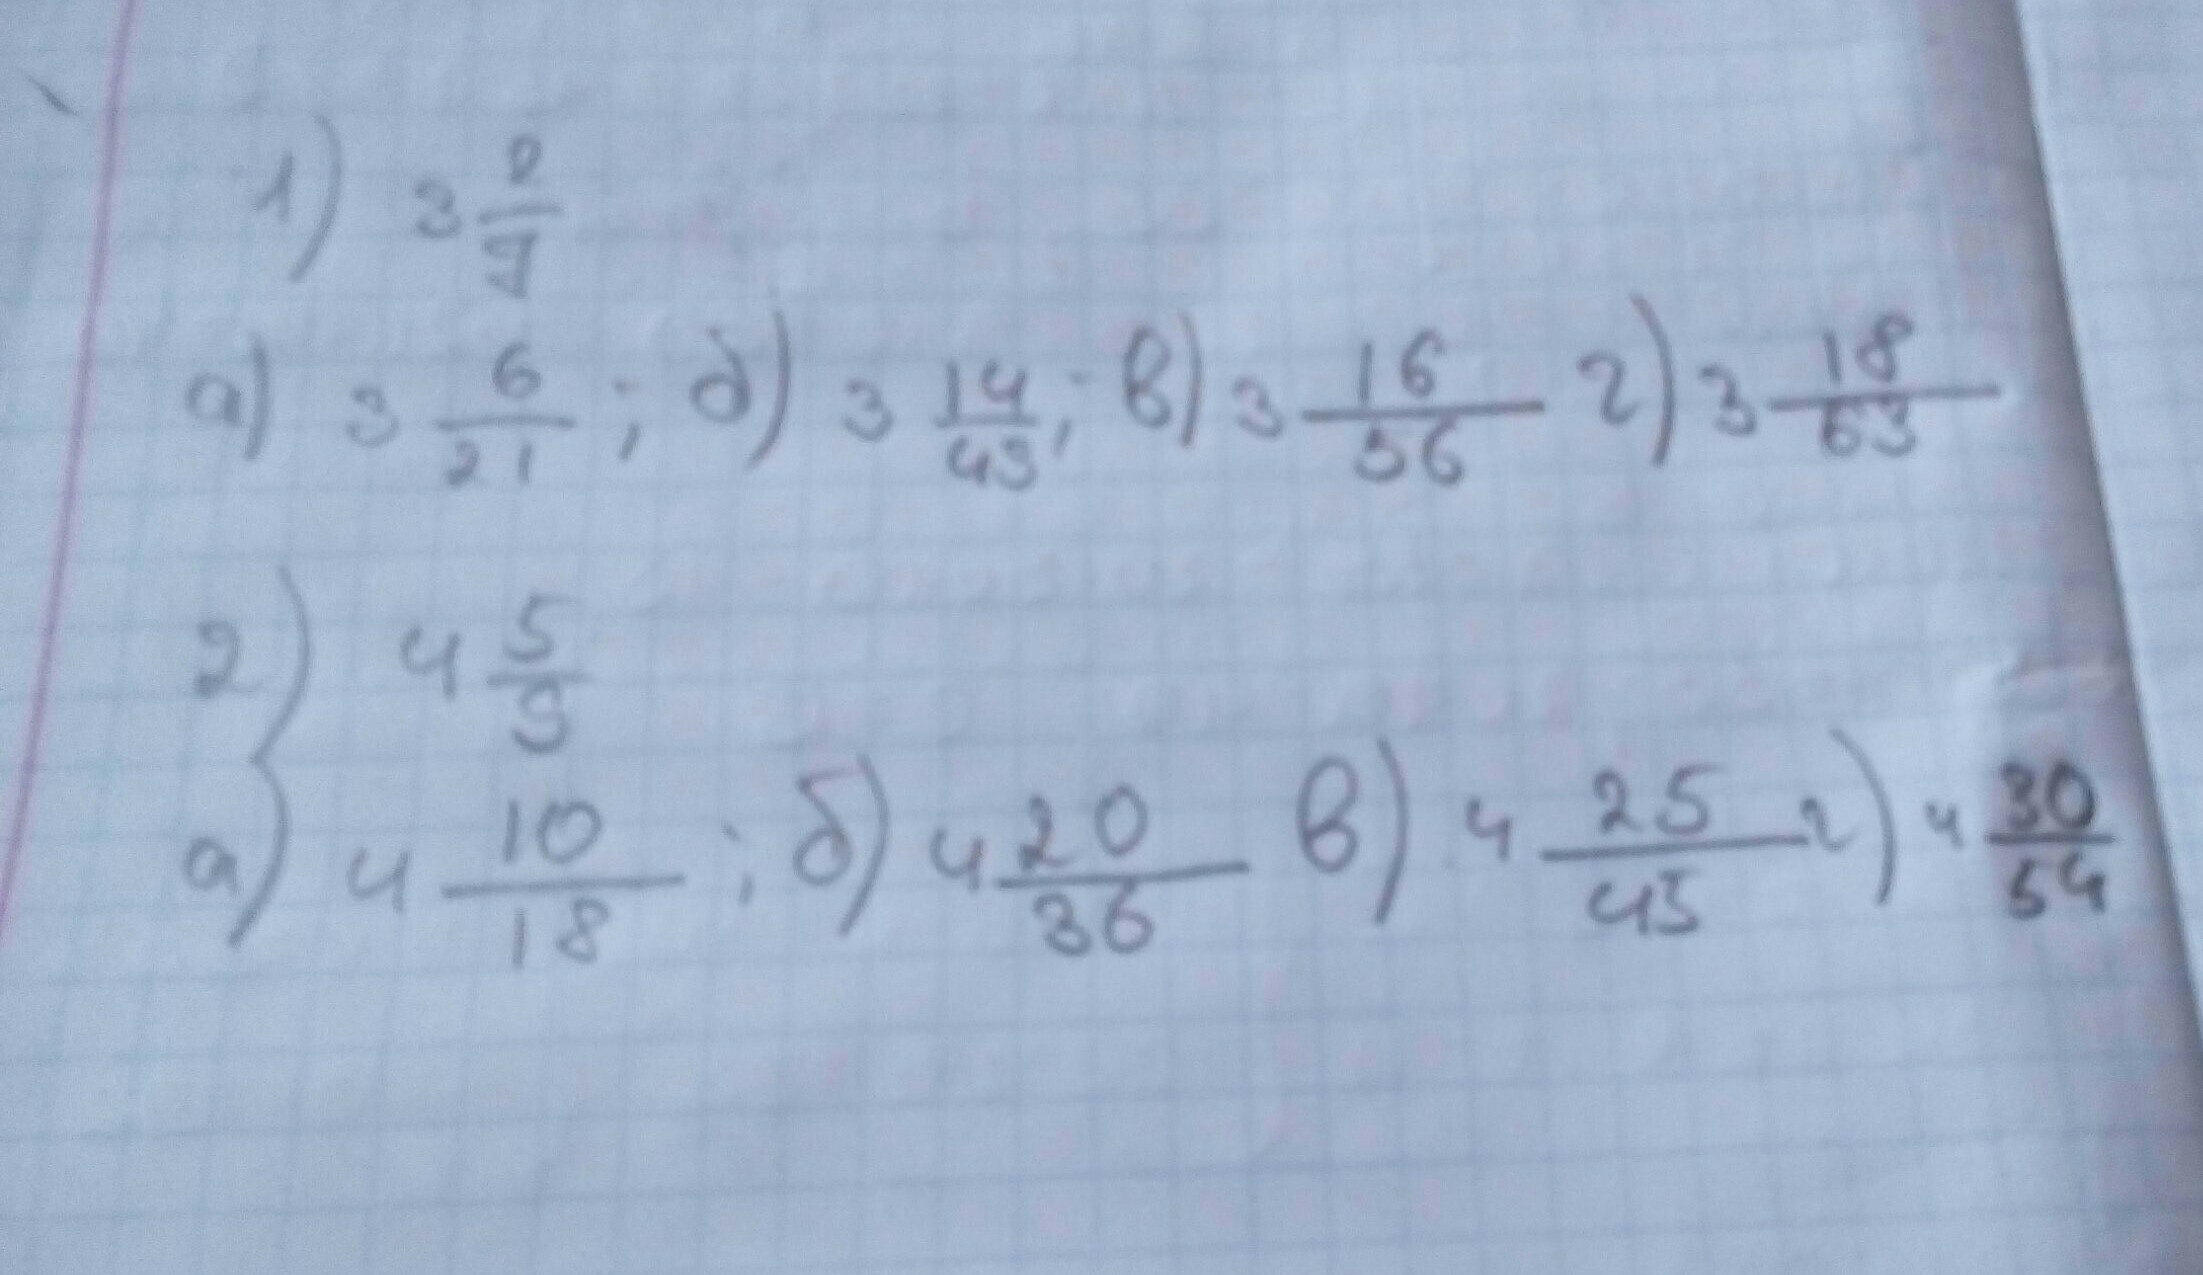 1) 3 2/7
а) 3 6/21 ; б) 3 14/49 ; в) 3 16/56 г) 3 18/63
2) 4 5/9
а) 4 10/18 ; б) 4 20/36 в) 4 25/45 г) 4 30/54